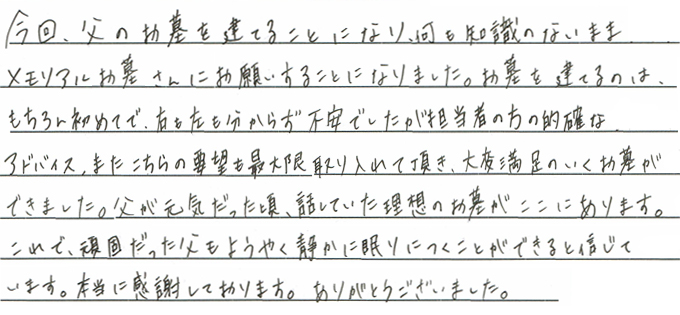 今回、父のお墓を建てることになり、何も知識のないまま
メモリアルお墓さんにお願いすることになりました。お墓を建てるのは、
もちろん初めてで、右も左も分からず不安でしたが担当者の方の的確な
アドバイス、またこちらの要望も最大限取り入れて頂き、大変満足のいくお墓が
できました。父が元気だった頃、話していた理想のお墓がここにあります。
これで、頑固だった父もようやく静かに眠りにつくことができると信じて
います。本当に感謝しております。ありがとうございました。